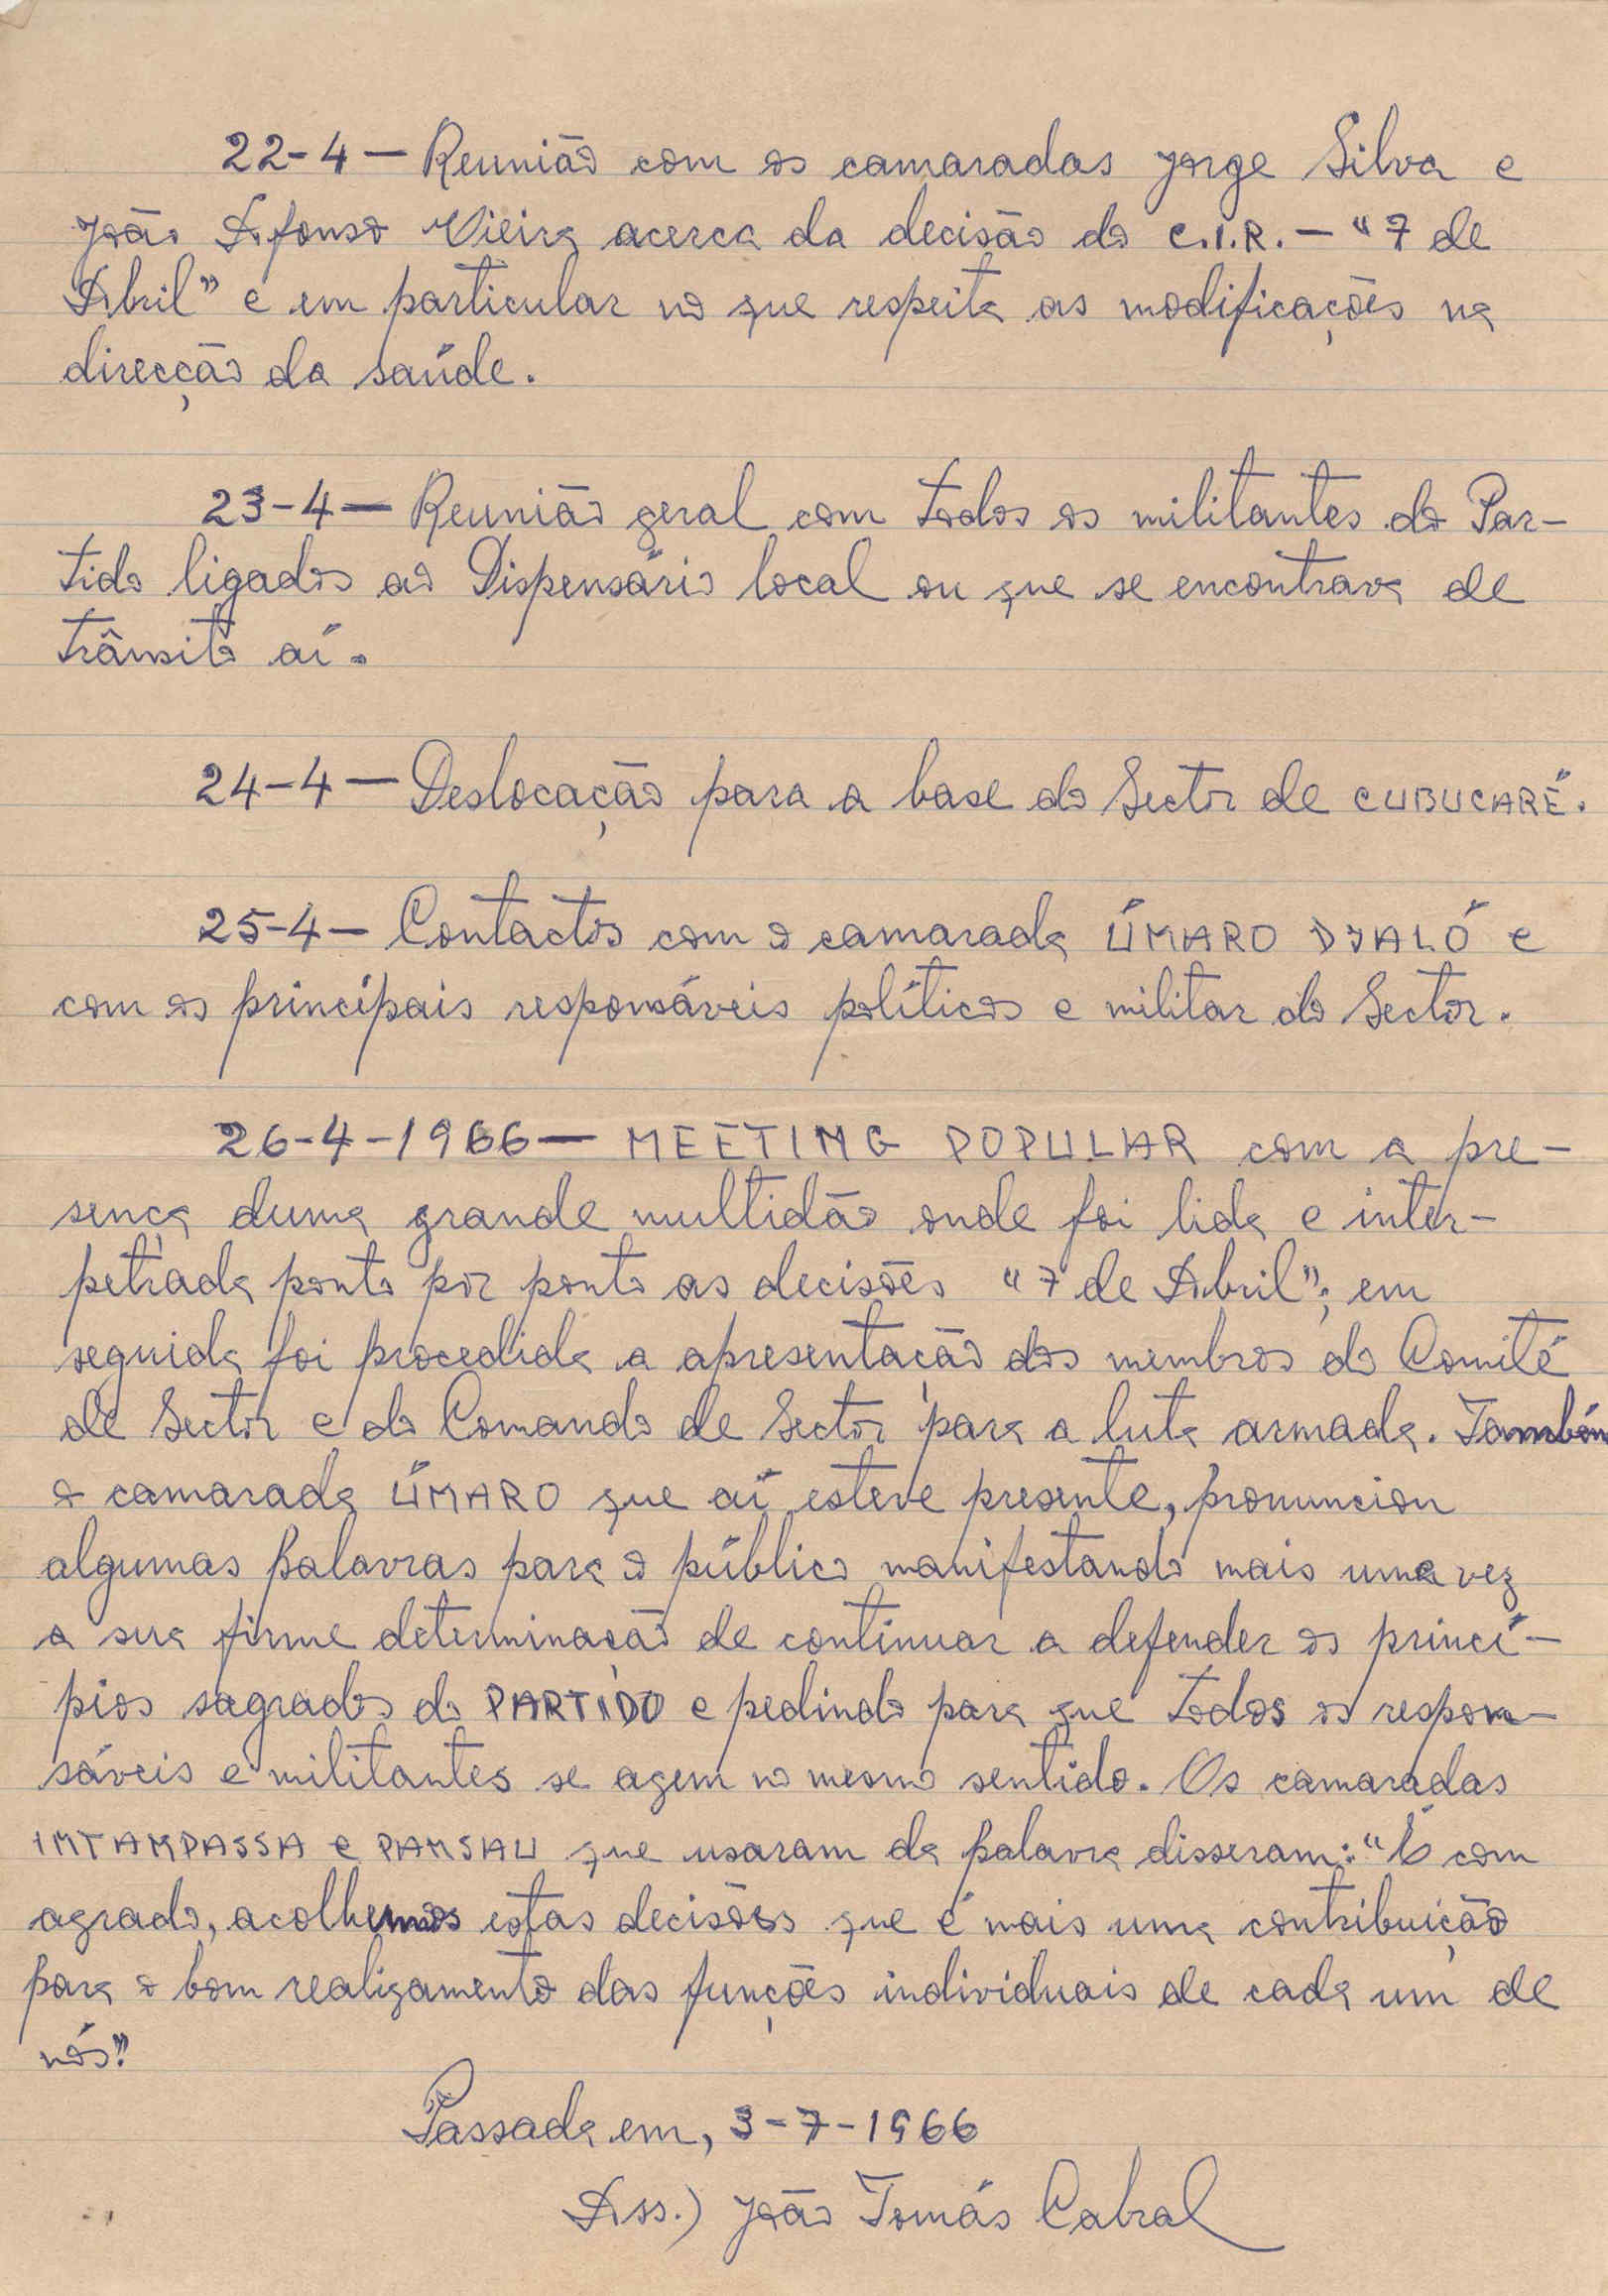 22-4 — Reunião com os camaradas Jorge Silva e
João Afonso Vieira acerca da decisão do C.I.R. — "7 de
Abril" e em particular no que respeita as modificações na
direcção da saúde.
23-4 — Reunião geral com todos os militantes do Par-
tido ligados ao Dispensário local ou que se encontrava de
trânsito aí.
24-4 — Deslocação para a base do Sector de CUBUCARÉ.
25-4 — Contactos com o camarada ÚMARO DJALÓ e
com os principais responsáveis políticos e militar do Sector.
26-4-1966 — MEETING POPULAR com a pre-
sença duma grande multidão onde foi lida e inter-
petrada ponto por ponto as decisões "7 de Abril"; em
seguida foi procedida a apresentação dos membros do Comité
de Sector e do Comando de Sector para a luta armada. Também
o camarada ÚMARO que aí esteve presente, pronunciou
algumas palavras para o público manifestando mais uma vez
a sua firme determinação de continuar a defender os princí-
pios sagrados do PARTIDO e pedindo para que todos os respon-
sáveis e militantes se agem no mesmo sentido. Os camaradas
INTAMPASSA e PANSAU que usaram da palavra disseram: "É com
agrado, acolhemos estas decisões que é mais uma contribuição
para o bom realizamento das funções individuais de cada um de
nós".
Passada em, 3-7-1966
Ass.) João Tomás Cabral